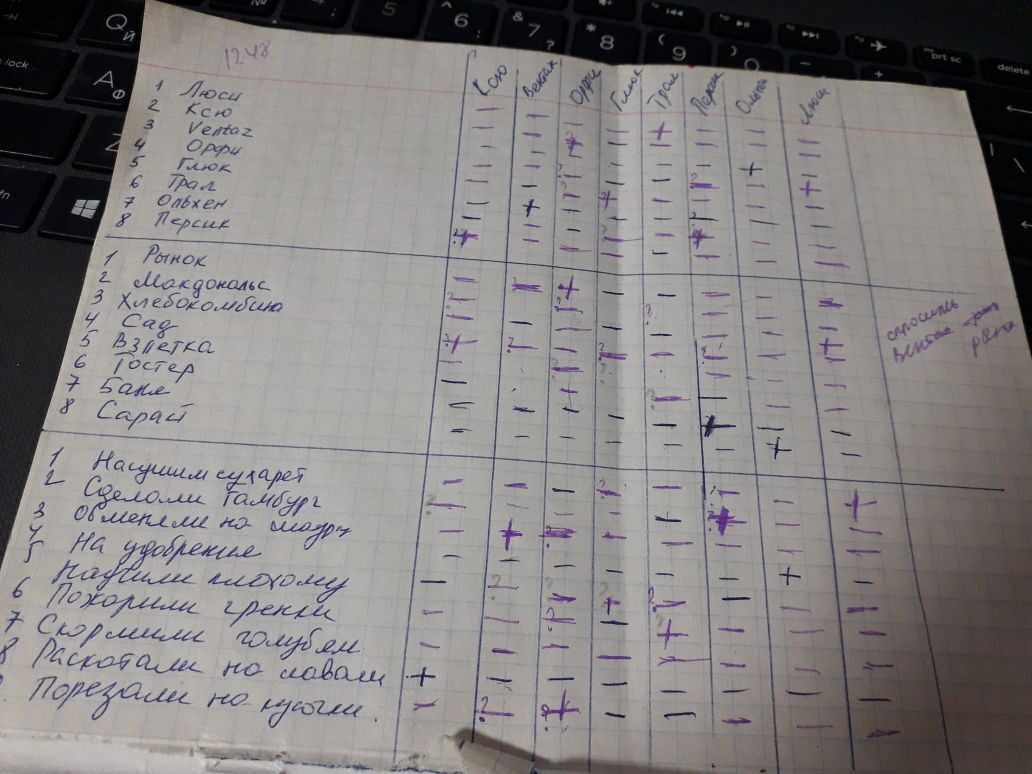 1248
Ксю Вентаз Орфи Глюк Трал Персик Ольхен Люси
1 Люси
2 Ксю
3 Ventaz
4 Орфи
5 Глюк
6 Трал
7 Ольхен
8 Персик
1 Рынок
2 Макдональс
3 Хлебокомбина
4 Сад
5 Взлетка
6 Тостер
7 Баня
8 Сарай
1 Насушим сухарей
2 Сделали Гамбург
3 Обменяли на
4 На удобрение
5 Научили плохому
6 Пожарили гренки
7 Скормили голубям
8 Раскатали на лаваш
Порезали на кусочки.
спросить
рынок